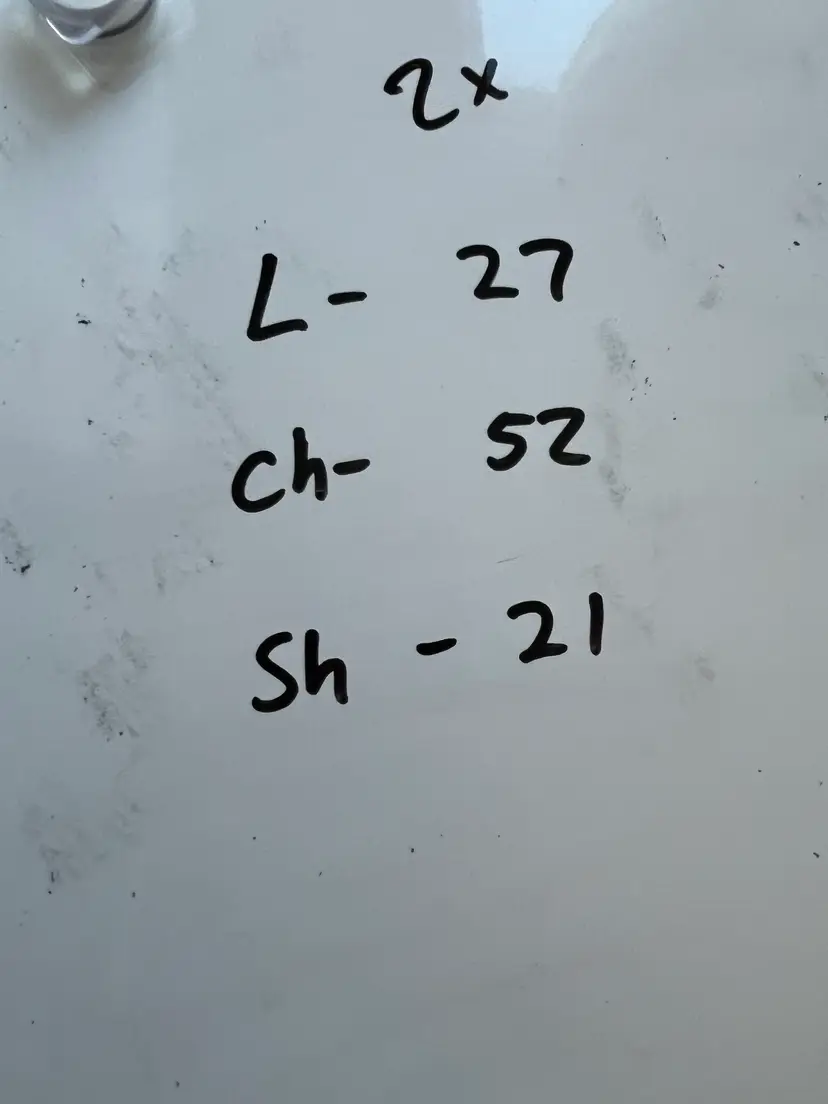 2x
L - 27
Ch- 52
Sh - 21